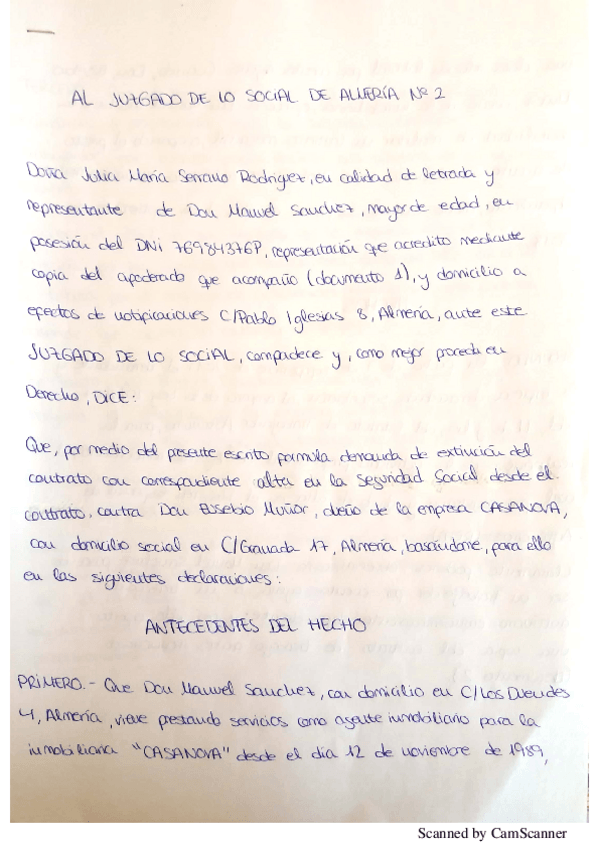 AL JUZGADO DE LO SOCIAL DE ALMERÍA Nº 2
Doña Julia María Serrano Rodríguez, en calidad de letrada y
representante de Don Manuel Sanchez, mayor de edad, en
posesión del DNI 76984376P, representación que acredito mediante
copia del apoderado que acompaño (documento 1), y domicilio a
efectos de notificaciones C/Pablo Iglesias 8, Almería, ante este
JUZGADO DE LO SOCIAL, compadece y, como mejor proceda en
Derecho, DICE:
Que, por medio del presente escrito formula demanda de extinción del
contrato con correspondiente alta en la Seguridad Social desde el
contrato, contra Don Eusebio Muñor, dueño de la empresa CASANOVA,
con domicilio social en C/Granada 17, Almería, basándome, para ello
en las siguientes declaraciones:
ANTECEDENTES DEL HECHO
PRIMERO.- Que Don Manuel Sanchez, con domicilio en C/Los Duendes
4, Almería, viene prestando servicios como agente inmobiliario para la
inmobiliaria "CASANOVA" desde el día 12 de noviembre de 1989,
Scanned by CamScanner